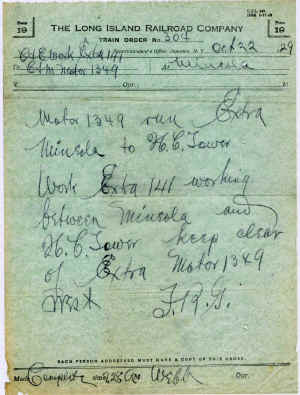 Form 19
THE LONG ISLAND RAILROAD COMPANY
Form 19
TRAIN ORDER No. 204
Superintendent's Office, Jamaica, N. Y. Oct 22 29
C&E Work Extra 141
C&M Motor 1349
At Mineola
Motor 1349 run Extra
Mineola to H.C. Tower
Work Extra 141 working
between Mineola and
H.C. Tower keep clear
of Extra Motor 1349
West F.R.G.
EACH PERSON ADDRESSED MUST HAVE A COPY OF THIS ORDER.
Made Complete Time 928 A M Webb Opr.